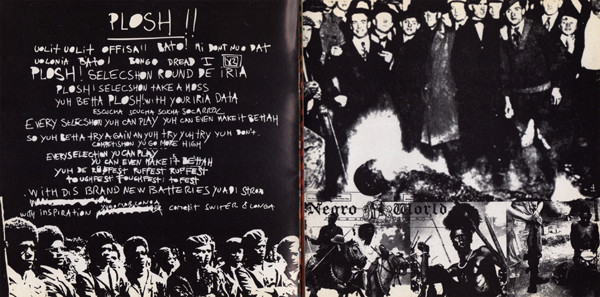 PLOSH !!
UOLIT UOLIT OFFISA!! BATO! MI DONT NUO DAT
UOLONIA BATO! BONGO DREAD I
PLOSH! SELECSHON ROUND DE IRIA
PLOSH! SELECSHON TAKE A HOSS
YUH BETTA PLOSH! WITH YOUR IRIA DATA
EVERY SELECSHON YUH CAN PLAY YUH CAN EVEN MAKE IT BETTAH
SO YUH BETTA TRY AGAIN AN YUH TRY YUH TRY YUH DON'T.
COMPETISHON YU GO MORE HIGH
EVERY SELECTION YU CAN PLAY
YU CAN EVEN MAKE IT BETTAH
YUH DE RUFFEST RUFFEST RUFFEST
TOUGHFEST TOUGHFEST
WITH DIS BRAND NEW BATTERIES
WITH INSPIRATION
Negro World